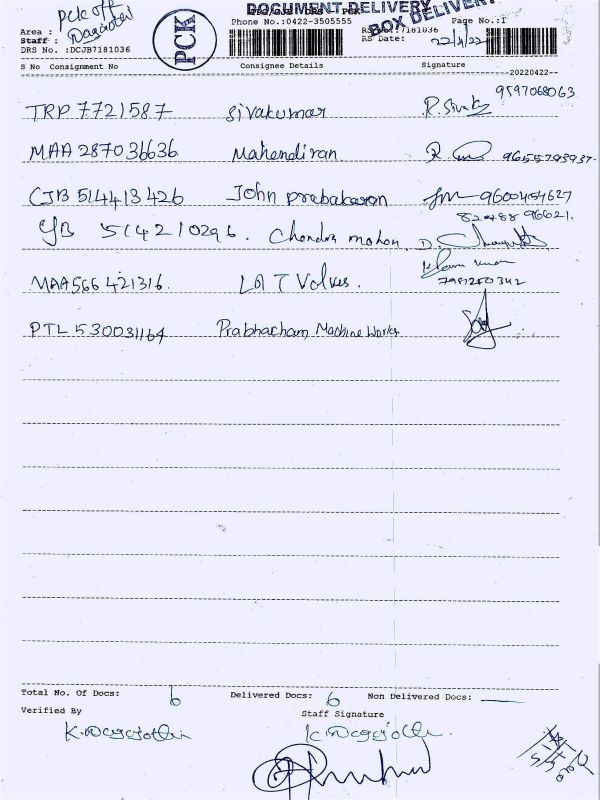 DOCUMENT DELIVERY
BOX DELIVERY
PCK off
PCK
Phone No.:0422-3505555
Page No.:1
Area :
Staff :
DRS No. :DCJB7181036
RS Date: 22/4/22
S No Consignment No Consignee Details Signature
--20220422--
9597068063
TRP 7721587 Sivakumar R.Siva
MAA 287036636 Mahendiran 9655793937
CJB 514413426 John prabakaran 9600454627
82488 96621.
514210296. Chandra mohan D.
MAA566 421316. LAT Valves.
7981250342
PTL 530031164 Prabhacham Machine Works
Total No. Of Docs: 6 Delivered Docs: 6 Non Delivered Docs:
Verified By Staff Signature